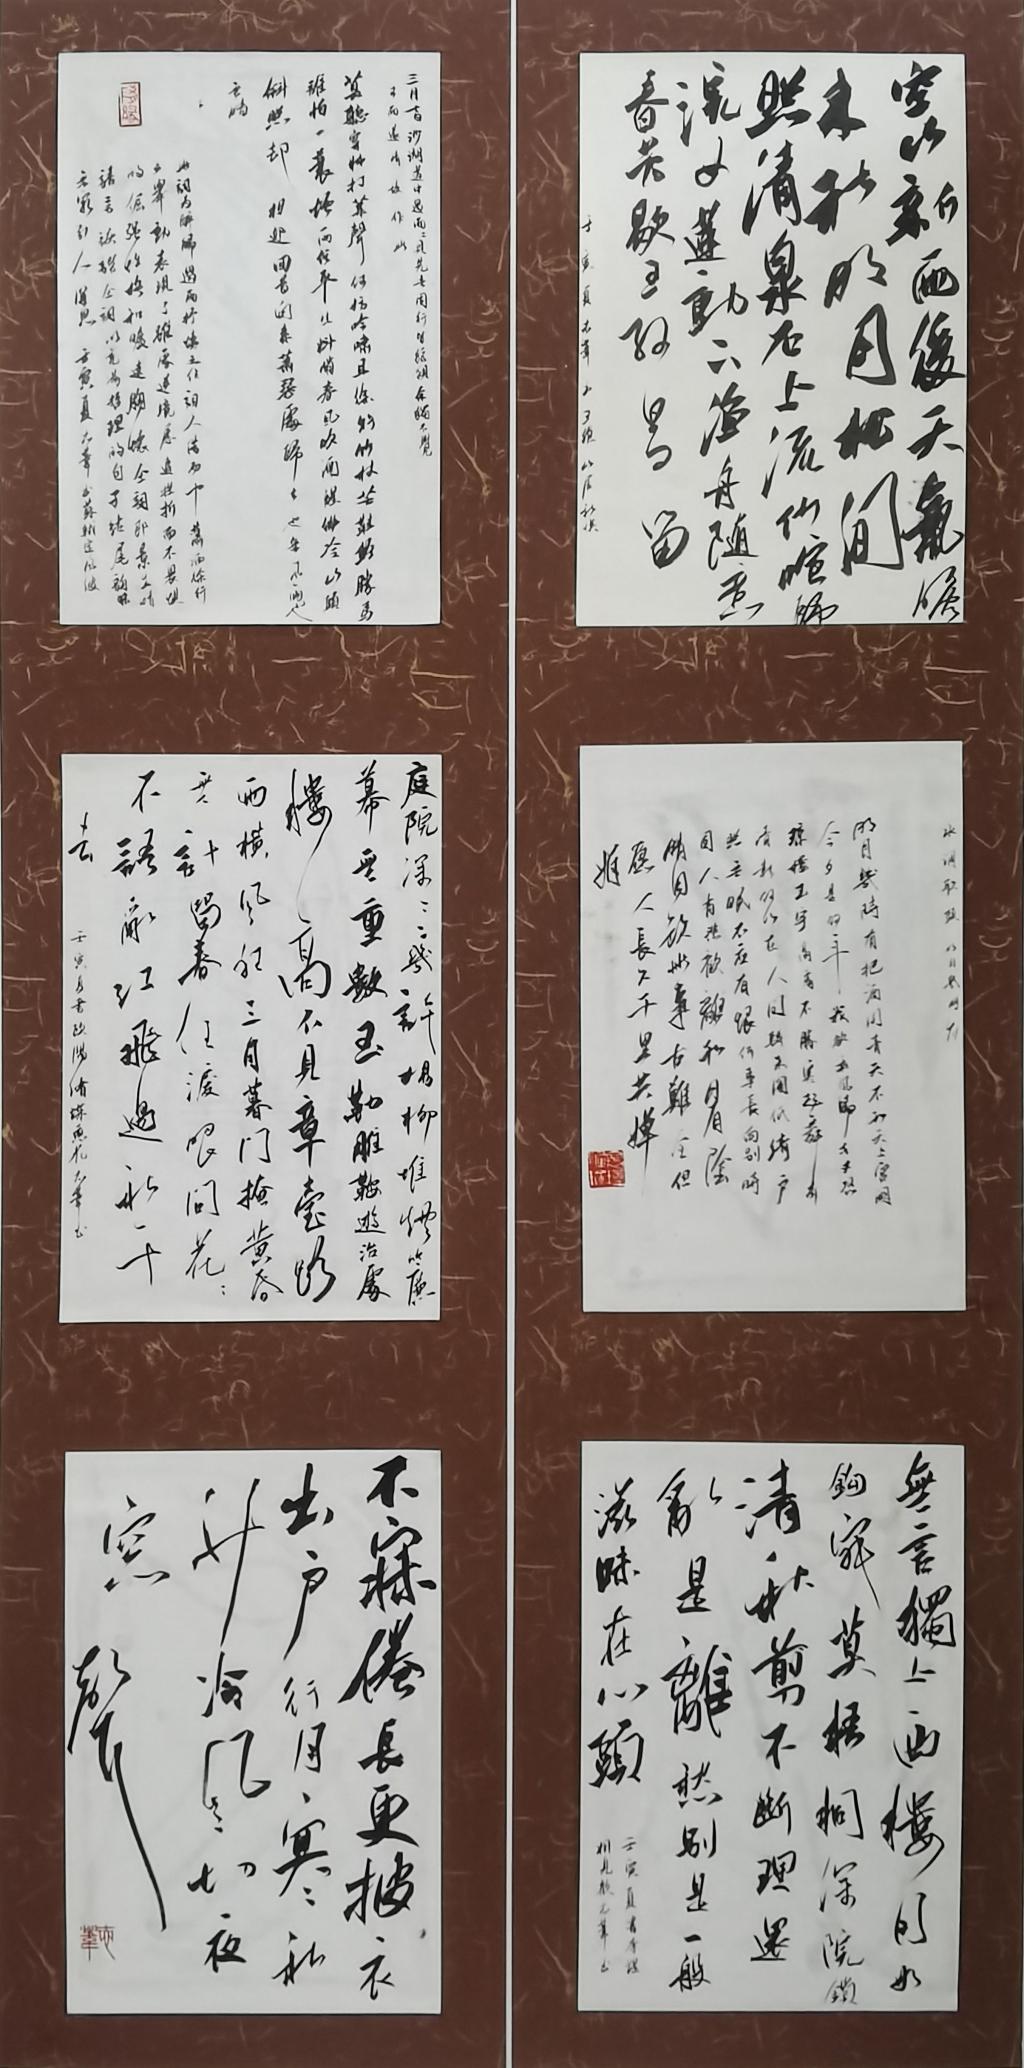 空山新雨後天氣晚
来秋明月松間
照清泉石上流竹喧歸
浣女蓮動下漁舟隨意
春芳歇王孫自留
壬寅夏志華書王維山居秋暝
三月七日沙湖道中遇雨雨具先去同行皆狼狽余獨不覺
已而遂晴故作此
莫聽穿林打葉聲何妨吟嘯且徐行竹杖芒鞋輕勝馬
誰怕一蓑煙雨任平生料峭春風吹酒醒微冷山頭
斜照却相迎回首向来蕭瑟處歸去也無風雨也
無晴
水調歌頭明月幾時有
明月幾時有把酒問青天不知天上宮闕
今夕是何年我欲乘風歸去又恐
瓊樓玉宇高處不勝寒起舞弄
清影何似在人間轉朱閣低綺戶
照無眠不應有恨何事長向別時
圓人有悲歡離合月有陰
晴圓缺此事古難全但
願人長久千里共嬋
娟
庭院深深深幾許楊柳堆煙簾
幕無重數玉勒雕鞍遊冶處
樓高不見章臺路
雨橫風狂三月暮門掩黄昏
無計留春住淚眼問花花
不語亂紅飛過秋千
去
壬寅夏書歐陽修蝶戀花志華書
無言獨上西樓月如
鉤寂寞梧桐深院鎖
清秋剪不斷理還
亂是離愁別是一般
滋味在心頭
壬寅夏書李煜
相見歡志華書
不寐倦長更披衣
出戶行月寒秋
竹冷風切夜
窓聲